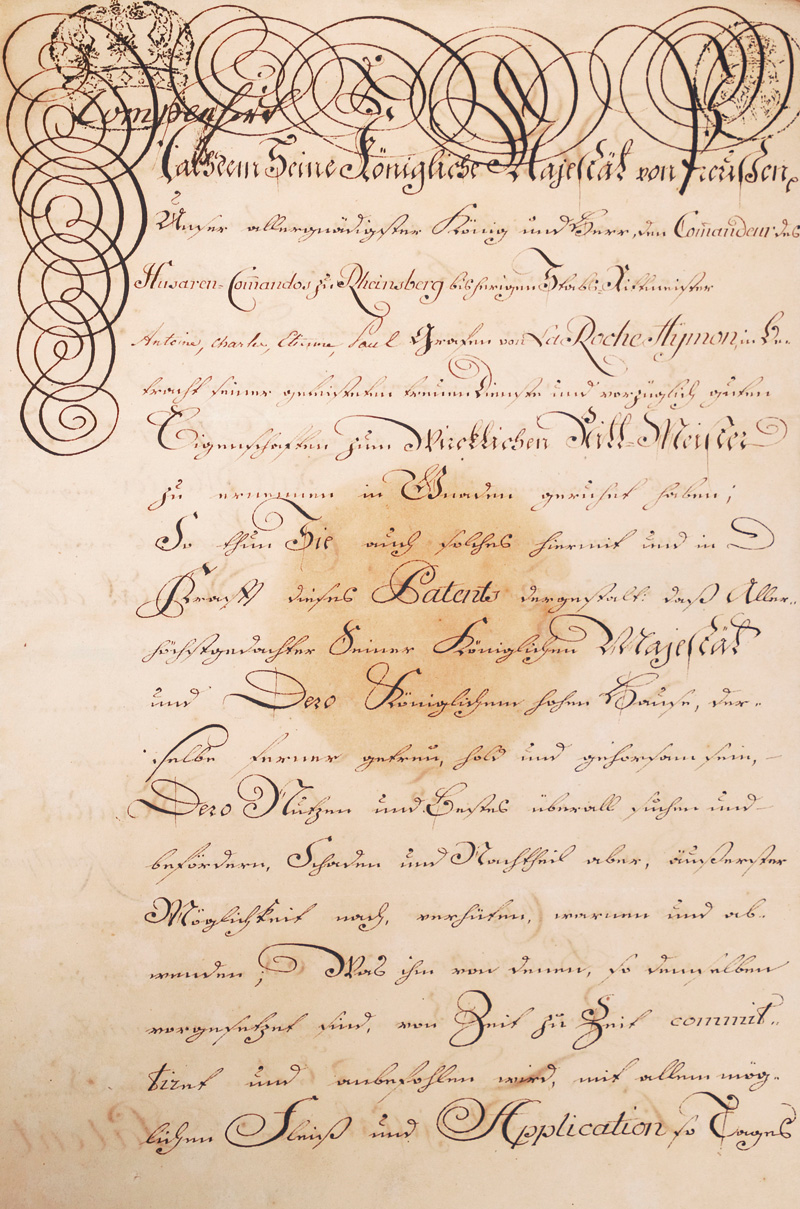 Compensirt
Nachdem Seine Königliche Majestät von Preußen,
Unser allergnädigster König und Herr, den Com̅andeur des
Husaren-Com̅andos zu Rheinsberg bisherigen Stabs-Rittmeister
Antoine, Charles, Etienne, Paul Grafen von La Roche Aymon, in Be-
tracht seiner geleisteten treuen Dienste und vorzüglich guten
Eigenschaften zum Wircklichen Ritt-Meister
zu ernennen in Gnaden geruhet haben;
So thun Sie auch solches hiermit und in
Krafft dieses Patents dergestalt: daß Aller-
höchstgedachter Seiner Königlichen Majestät
und Dero Königlichem hohen Hause, der-
selbe ferner getreu, hold und gehorsam sein,
Dero Nutzen und Bestes überall suchen und
befördern, Schaden und Nachtheil aber, äußerster
Möglichkeit nach, verhüten, warnen und ab-
wenden; Was ihm von denen, so demselben
vorgesetzet sind, von Zeit zu Zeit commit-
tiret und anbefohlen wird, mit allem mög-
lichen Fleiß und Application so Tages